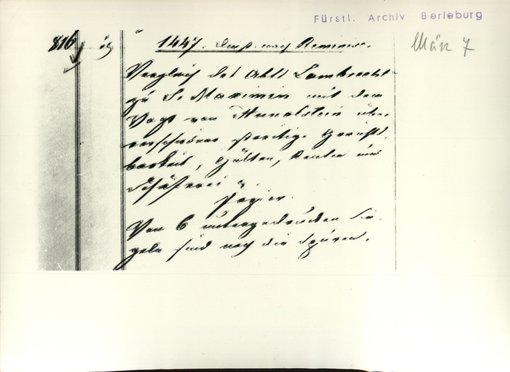 Fürstl. Archiv Berleburg
März 7
816
1447. Dienst. nach
Vergleich des Abts Lambrecht
zu St. Maximin mit dem
Vogt von Hunolstein über
verschiedene streitige Gericht-
barkeit, Gülten, Renten und
Schäferei
Papier.
Von 6 untergedruckten Sie-
geln sind noch die Spuren.